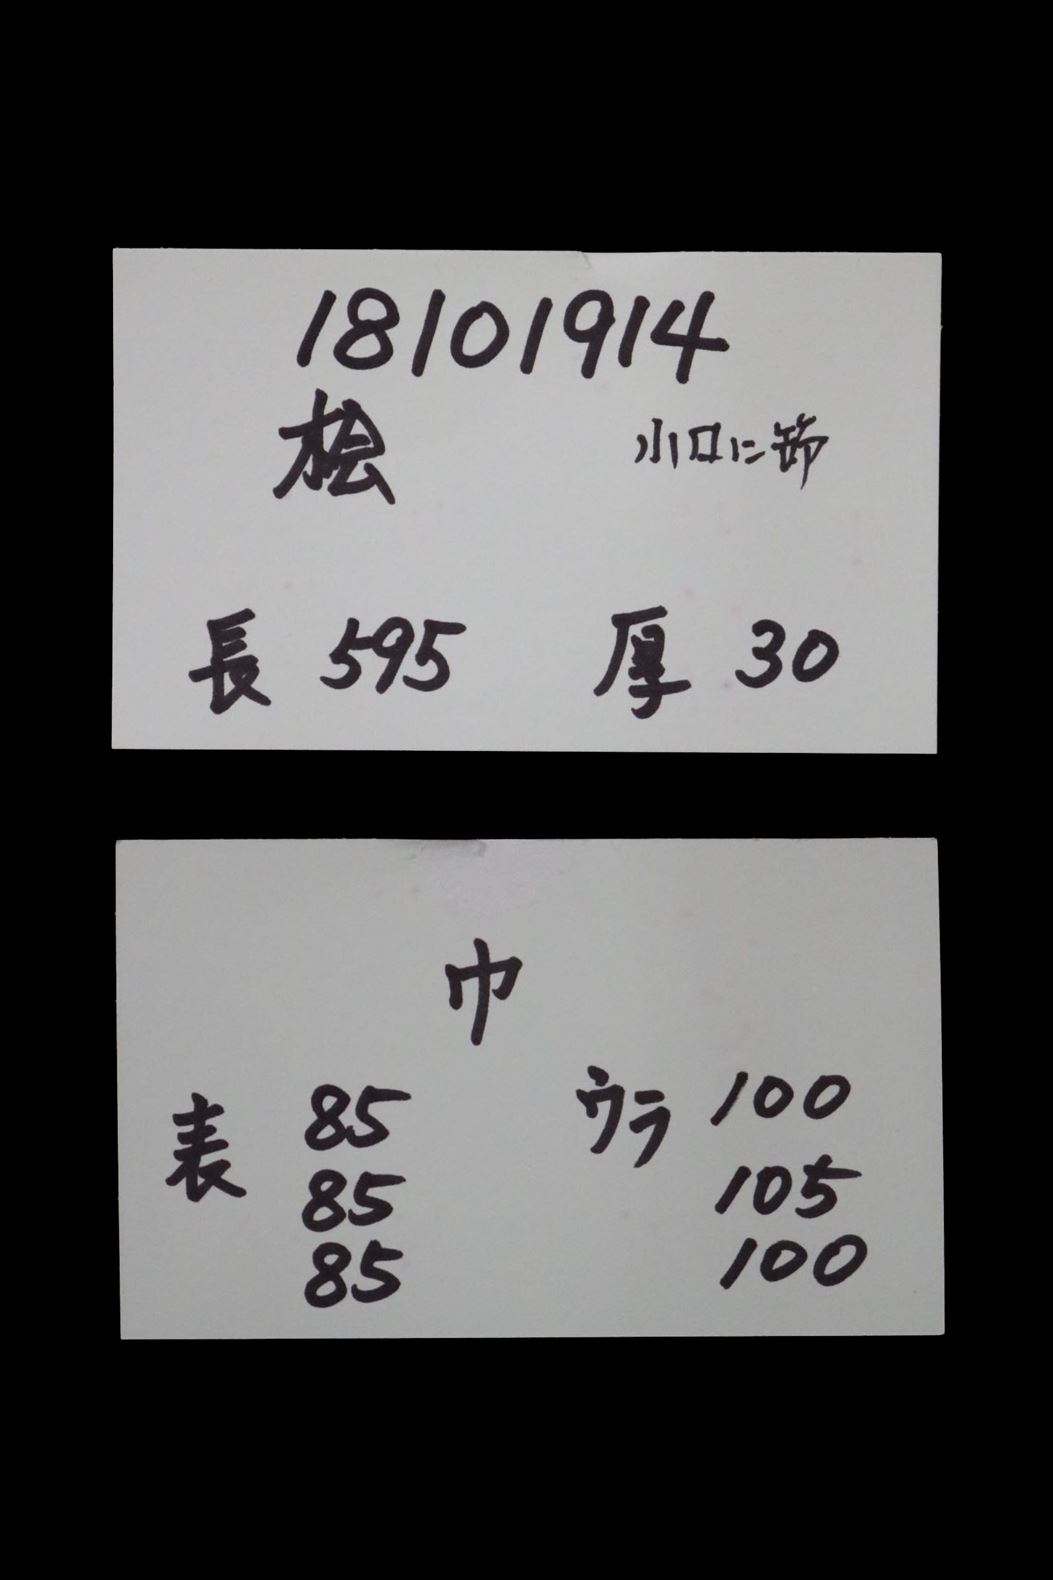 18101914
桧 小口に節
長 595 厚 30
巾
表 85 ウラ 100
85 105
85 100